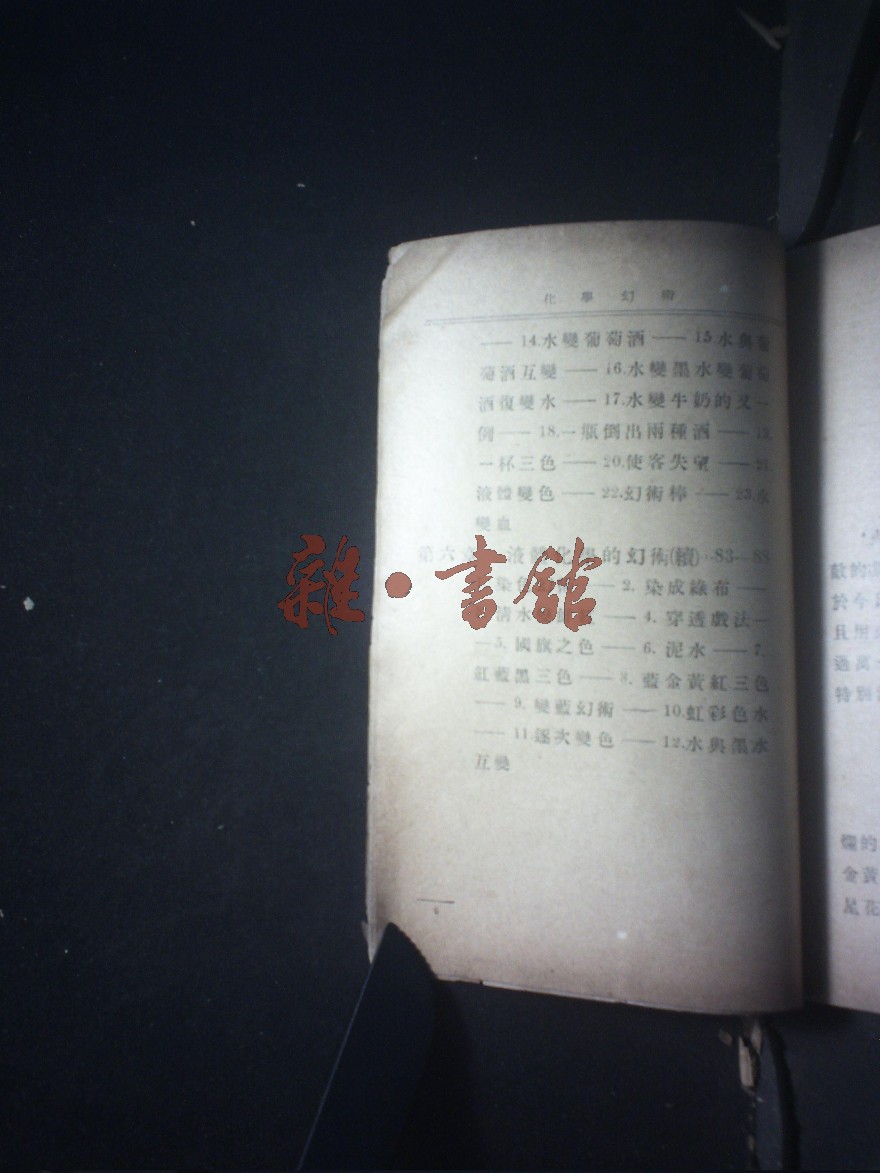 化學幻術
—— 14.水變葡萄酒 —— 15.水與葡
萄酒互變 —— 16.水變墨水變葡萄
酒復變水 —— 17.水變牛奶的又一
例 —— 18.一瓶倒出兩種酒 —— 19.
一杯三色 —— 20.使客失望 —— 21.
液體變色 —— 22.幻術棒 —— 23.水
變血
第六 液 化學的幻術(續)
—— 2. 染成綠布 ——
清水 —— 4. 穿透戲法 —
— 5. 國旗之色 —— 6. 泥水 —— 7.
紅藍黑三色 —— 8. 藍金黃紅三色
—— 9. 變藍幻術 —— 10.虹彩色水
—— 11.逐次變色 —— 12.水與墨水
互變
雜·書館
敵的
於今
且用
過萬
特別
爛的
金黃
是花